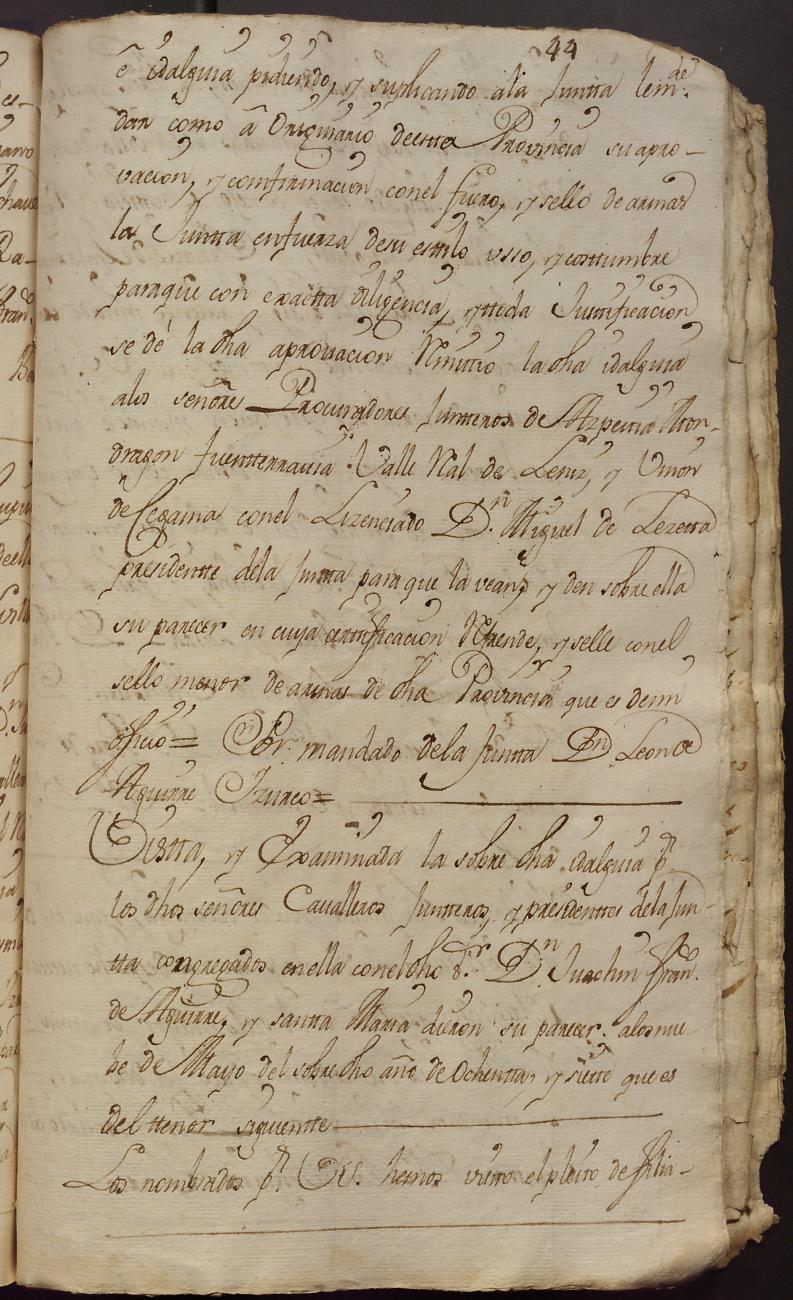 44
é idalguia pidiendo, y suplicando ala Juntta lem.de
dan como â Originario deestta Provincia su apro-
vacion, y comfirmacion conel fuero, y sello de armas
la Juntta enfuerza desu estilo usso, y costtumbre
paraque con exactta diligencia, ytteda Justtificacion
se dè la dha aprovacion Rmittio la dha idalguia
alos señores Procuradores Juntteros de Azpeitia Mon-
dragon fuentterravia. Valle Ral de Leniz, y Union
de Cegama conel Lizenciado Dn. Miguel de Lezetta
presidentte dela Juntta para que la vean, y den sobre ella
su parecer en cuya certtificacion Refrende, y selle conel
sello menor de armas de dha Provincia que es demi
oficio= Por mandado dela Juntta Dn Leon de
Aguirre Zurco=
Vistta, y Examinada la sobre dha idalguia pr.
los dhos señores Cavalleros Juntteros, y presidenttes dela Jun-
tta congregados en ella conel dho Sr. Dn Juachin Fran.co
de Aguirre, y santta Maria dieron su parecer alos nue-
be de Mayo del sobre dho año de Ochentta, y siette que es
del ttenor siguientte
Los nombrados pr. VS. hemos visto el pleito de filia-